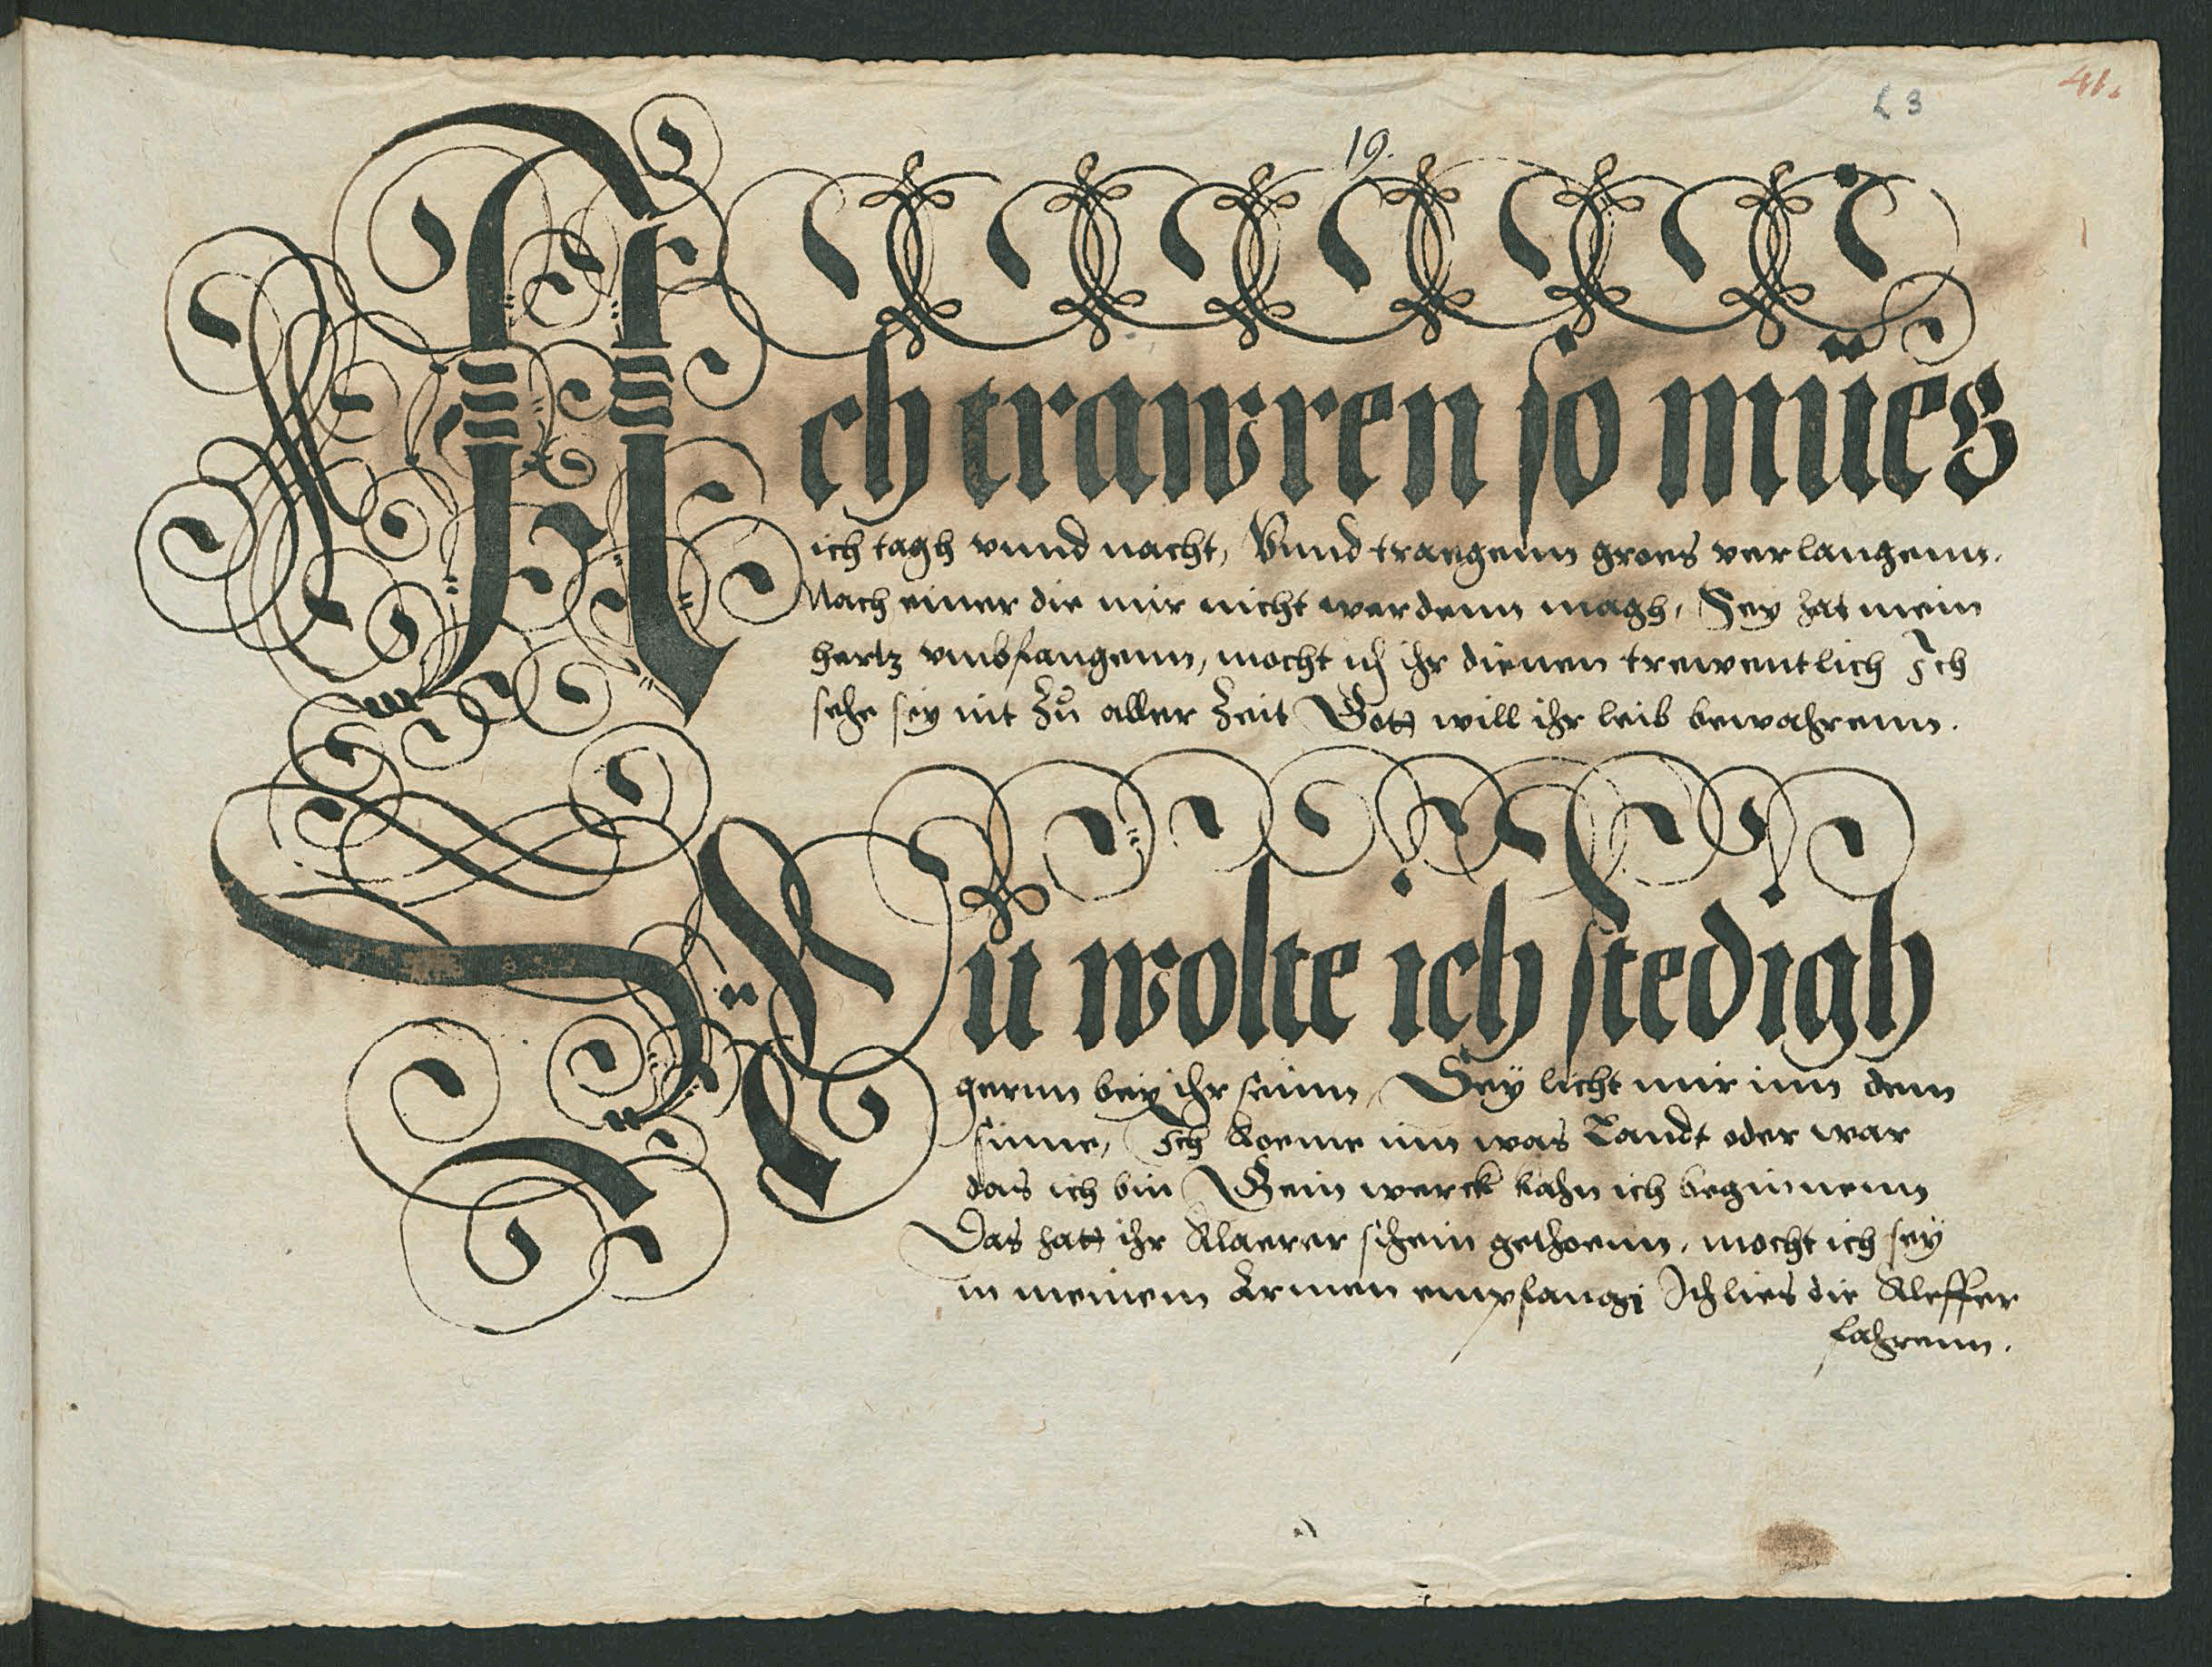 41.
L 3
19.
Ach trawren so mües
ich tagh vnnd nacht, Vnnd traegenn groes verlangenn.
Nach einer die mir nicht werdenn magh, Sey hat mein
hertz vmbfangenn, mocht ich ihr dienen trewentlich Ich
sehe sey nit Zů aller Zeit Gott will ihr leib bewahrenn.
Nu wolte ich stedigh
gernn bey ihr seinn, Sey licht mir inn dem
sinne, Ich koeme inn was Landt oder war
das ich bin Gein werck kahn ich beginnenn
Das hatt ihr klaerer schein gethoenn, mocht ich sey
in meinem Armen empfangen Ich lies die kleffer
fahrenn.